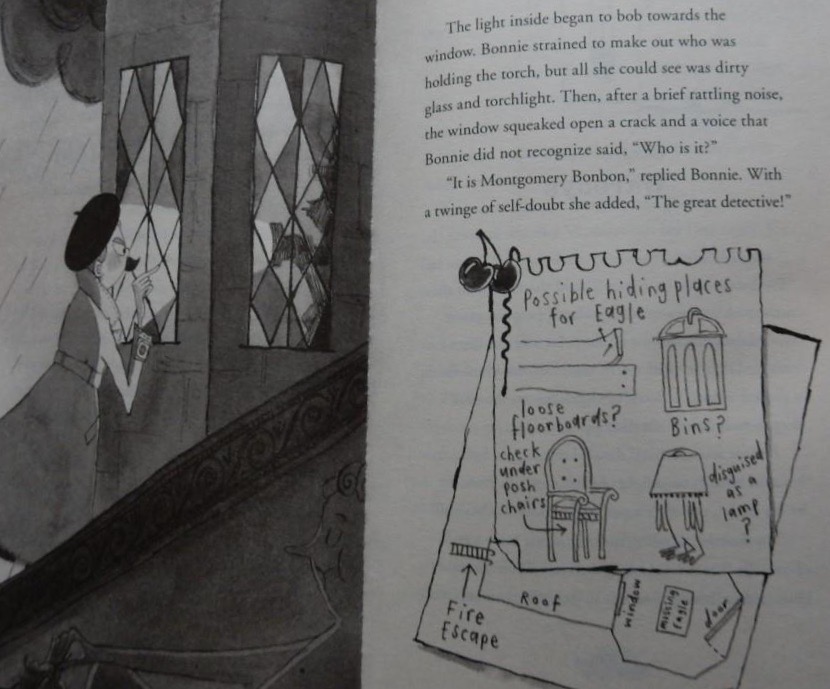 The light inside began to bob towards the
window. Bonnie strained to make out who was
holding the torch, but all she could see was dirty
glass and torchlight. Then, after a brief rattling noise,
the window squeaked open a crack and a voice that
Bonnie did not recognize said, “Who is it?”
“It is Montgomery Bonbon,” replied Bonnie. With
a twinge of self-doubt she added, “The great detective!”
Possible hiding places
for Eagle
loose
floorboards?
Bins?
check
under
posh
chairs
disguised
as a
lamp
?
Fire
Escape
Roof
window
missing
Eagle
door